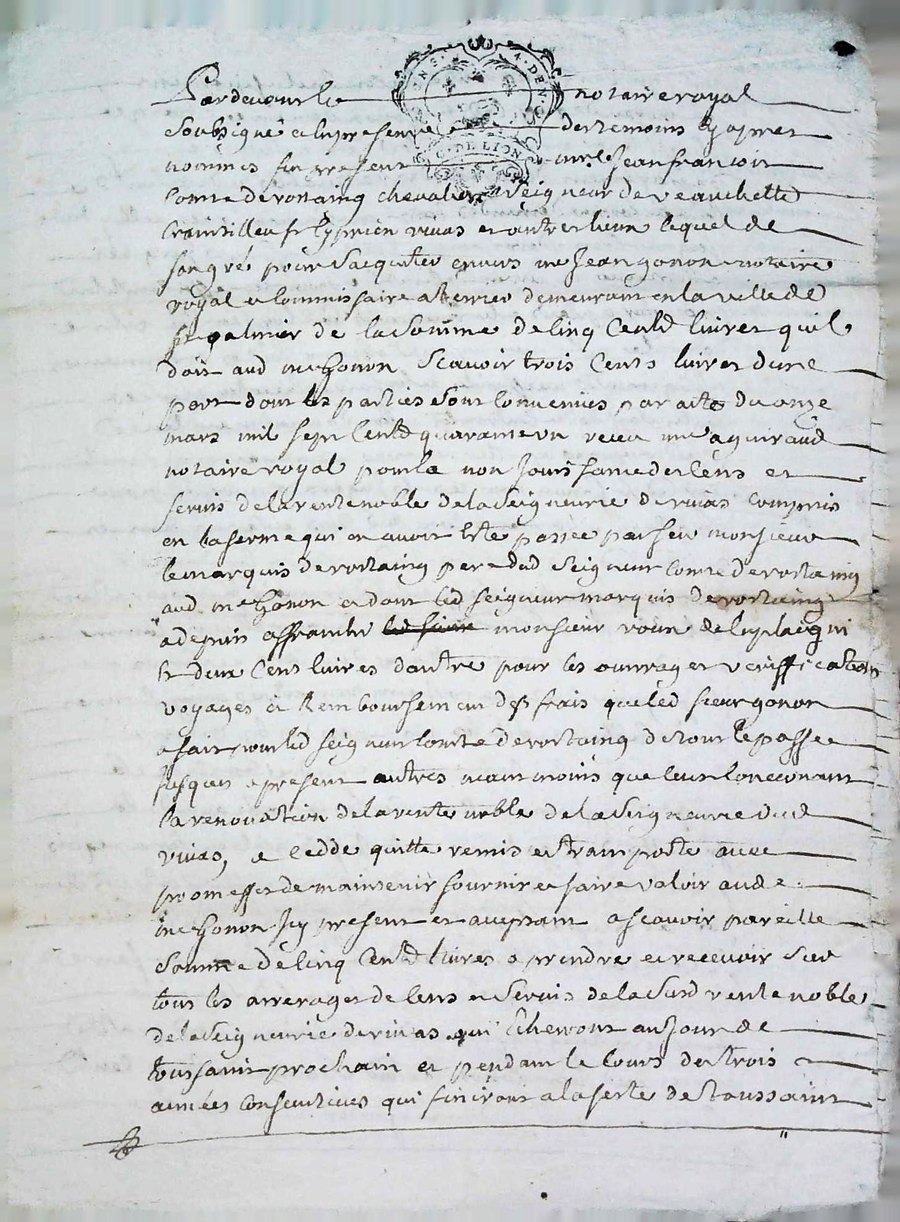 G. DE LION
Pardevant le notaire royal
Soubsigné et en presence des temoins cy apres
nommés fut present messire Jean francois
Comte de rostaing chevalier Seigneur de veauchette
Craintilleu st Cyprien rivas et autres lieux lequel de
son gré pour Sacquiter envers me Jean gonon notaire
royal et Commissaire a terrier demeurant en la ville de
st galmier de la Somme de Cinq Cents livres quil
doit aud me Gonon Scavoir trois Cents livres dune
part dont les parties Sont Convenües par acte du onze
mars mil sept Cents quarante un receu me aguiraud
notaire royal pour la non Jouissance des Cens et
servis de la rente noble de la Seigneurie de rivas Compris
en la ferme qui en avoit Eté passée par feu monsieur
le marquis de rostaing pere dud Seigneur Comte de rostaing
aud me Gonon et dont led seigneur marquis de rostaing
a depuis affranchi monsieur
et deux Cent livres dautre pour les ouvrages veriffication
voyages et Remboursement des frais que led sieur gonon
a fait pour led seigneur Comte de rostaing de tout le passée
Jusques a present autres neantmoins que Ceux Concernant
la renovation de la rente noble de la Seigneurie dud
rivas, a cedde quitte remis et transporté avec
promesse de maintenir fournir et faire valoir aud
me Gonon Icy present et acceptant a scavoir pareille
Somme de Cinq Cents livres a prendre et recevoir Sur
tous les arrerages de Cens et Servis de la Susd rente noble
de la Seigneurie de rivas qui Echeront au Jour de
toussaint prochain et pendant le Cours des trois
années Consecutives qui finiront a la feste de toussaint